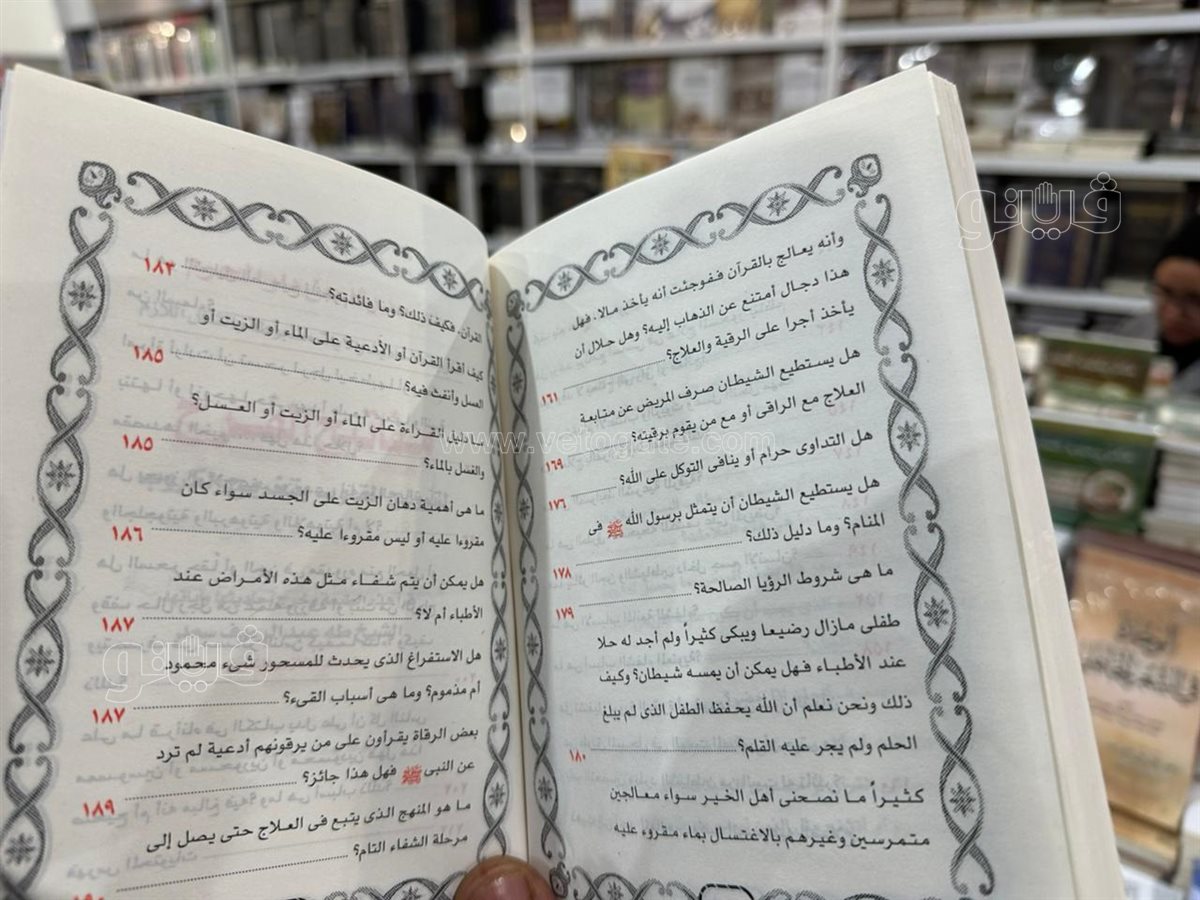 وأنه يعالج بالقرآن ففوجئت أنه يأخذ مالا. فهل
هذا دجال أمتنع عن الذهاب إليه؟ وهل حلال أن
يأخذ أجرا على الرقية والعلاج؟ ١٦١
هل يستطيع الشيطان صرف المريض عن متابعة
العلاج مع الراقى أو مع من يقوم برقيته؟ ١٦٩
هل التداوى حرام أو ينافى التوكل على الله؟ ١٧٦
هل يستطيع الشيطان أن يتمثل برسول الله ﷺ فى
المنام؟ وما دليل ذلك؟ ١٧٨
ما هى شروط الرؤيا الصالحة؟ ١٧٩
طفلى مازال رضيعا ويبكى كثيراً ولم أجد له حلا
عند الأطباء فهل يمكن أن يمسه شيطان؟ وكيف
ذلك ونحن نعلم أن الله يحفظ الطفل الذى لم يبلغ
الحلم ولم يجر عليه القلم؟ ١٨٠
كثيراً ما نصحنى أهل الخير سواء معالجين
متمرسين وغيرهم بالاغتسال بماء مقروء عليه
القرآن. فكيف ذلك؟ وما فائدته؟ ١٨٣
كيف اقرأ القرآن أو الأدعية على الماء أو الزيت أو
العسل وأنفث فيه؟ ١٨٥
ما دليل القراءة على الماء أو الزيت أو العسل؟
والغسل بالماء؟ ١٨٥
ما هى أهمية دهان الزيت على الجسد سواء كان
مقروءا عليه أو ليس مقروءا عليه؟ ١٨٦
هل يمكن أن يتم شفاء مثل هذه الأمراض عند
الأطباء أم لا؟ ١٨٧
هل الاستفراغ الذى يحدث للمسحور شىء محمود
أم مذموم؟ وما هى أسباب القىء؟ ١٨٧
بعض الرقاة يقرأون على من يرقونهم أدعية لم ترد
عن النبى ﷺ فهل هذا جائز؟ ١٨٩
ما هو المنهج الذى يتبع فى العلاج حتى يصل إلى
مرحلة الشفاء التام؟
فيتو
www.vetogate.com
فيتو